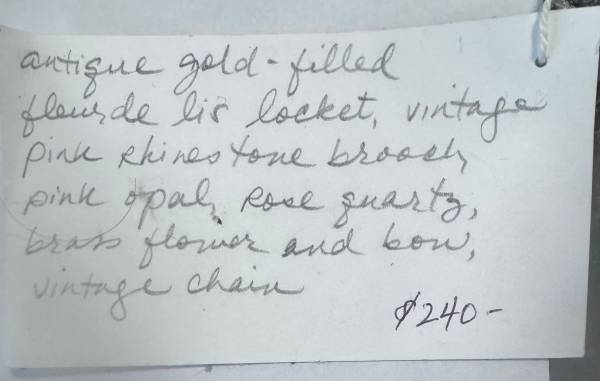 antique gold-filled
fleur de lis locket, vintage
pink rhinestone brooch,
pink opal, rose quartz,
brass flower and bow,
vintage chain
$240-